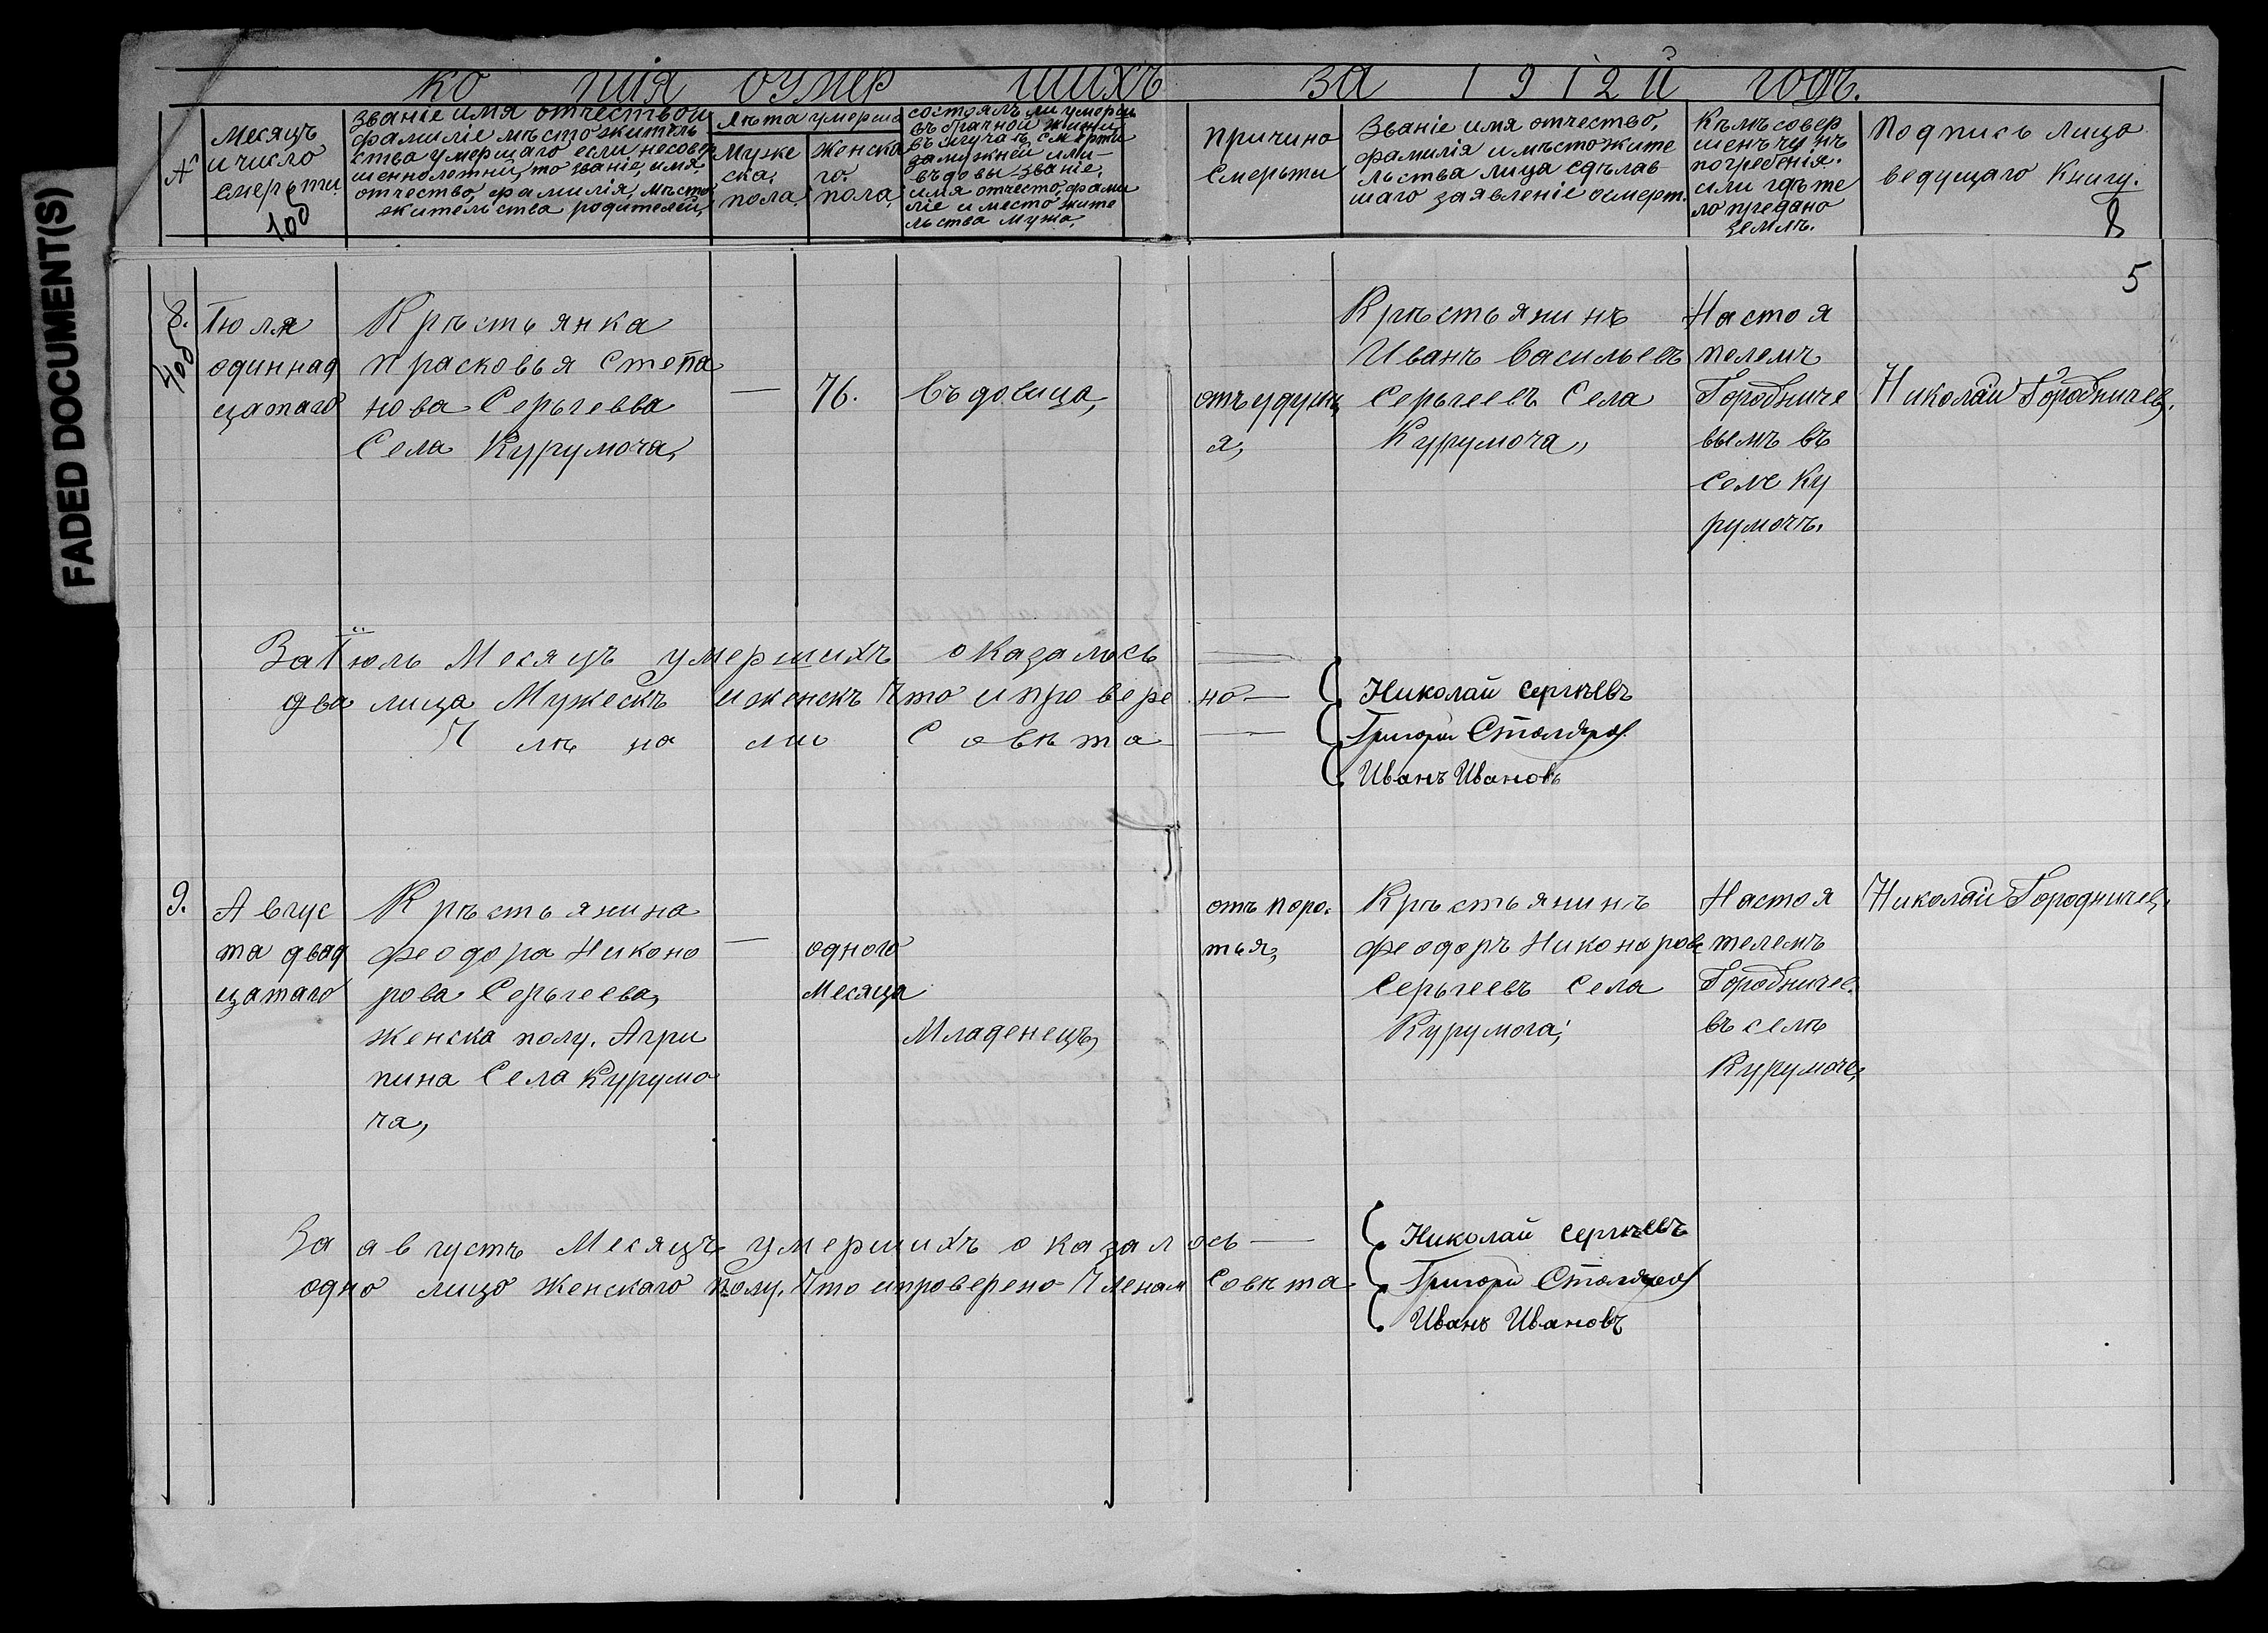 FADED DOCUMENT(S)
копія оумер шихъ за 1912й годъ.
№
Месяцъ
и число
смерьти
10б
Званіе имя отчествои
фамиліе мѣсто житель
ства умершаго если несовер
шеннолетній, то званіе, имя,
отчество, фамилія, мѣсто
жительства родителей,
Лѣта умерша
Муже
ска,
пола,
Женска
го,
пола,
состоялъ ли умерши
въ брачной жизни
въ случаѣ смерти
замужней или
въдовы - званіе,
имя отчесто, фами
ліе и место жите
льства мужа,
причино
смерьти
Званіе имя отчество,
фамилія и мѣстожите
льства лица сдѣлав
шаго заявленіе осмерт.
Кѣмъ совер
шенъ чу нъ
погребенія.
или гдѣ те
ло предано
землѣ.
Подпись лица
ведущаго книгу.
8
5
8.
Іюля
одиннад
цатаго
Крѣстьянка
прасковья Степа
нова Серьгевва
Села Курумоча,
—
76.
въдовица,
отъ удуши
я,
Крѣстьянинъ
Иванъ Васильевъ
Серьгеевъ Села
Курумоча,
Настоя
телемъ
Городниче
вымъ въ
селе Ку
румочѣ.
Николай Городничев,
За Іюль Месяцъ умершихъ оказалось
два лица Мужескъ иженскъ Что и провере но —
Членами Совѣта
Николай Сергѣевъ
Григори Столяров
Иванъ Ивановъ
9.
Авгус
та двад
цатаго
Крѣстьянина
феодора Никоно
рова Серьгеева,
женска полу. Агри
пина Села Курумо
ча,
—
одного
Месяца
Младенецъ,
отъ поро.
тья,
Крѣстьянинъ
феодоръ Никоноров
Серьгеевъ Села
Курумоча;
Настоя
телемъ
Городничев.
въ селѣ
Курумоче,
Николай Городничев,
За августъ Месяцъ умершихъ оказалось —
одно лицо Женскаго полу. Что ипроверено Членам Совѣта
Николай Сергѣевъ
Григори Столяров
Иванъ Ивановъ